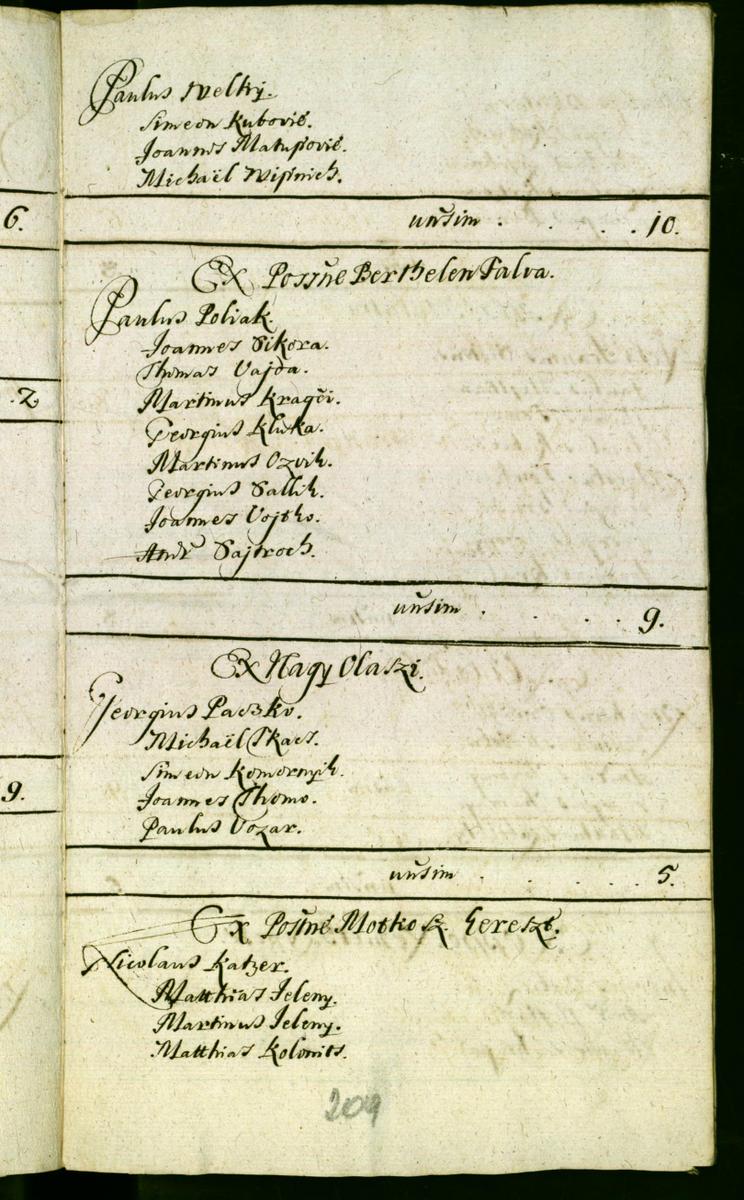 Paulus Welky.
Simeon Kubovič.
Joannes Matusovič.
Michaël
6.
unšim . . . . 10.
Ex Possne Berthelen Falva.
Paulus Poliak.
Joannes Sikora.
Thomas Vajda.
.2.
Martinus Kragči.
Georgius Kluka.
Martinus Ozvik.
Georgius Sallik.
Joannes Vojtko.
Andr Sajtroch.
unšim . . . . 9.
Ex Nagy Olaszi.
Georgius Paczko.
Michaël Tkacs.
Simeon Komornyik.
9.
Joannes Thomo.
Paulus Vozar.
unšim . . . . 5.
Ex Possne Motko Sz. Kereszt.
Nicolaus Katzer.
Matthias Jeleny.
Martinus Jeleny.
Matthias Kolonits.
209